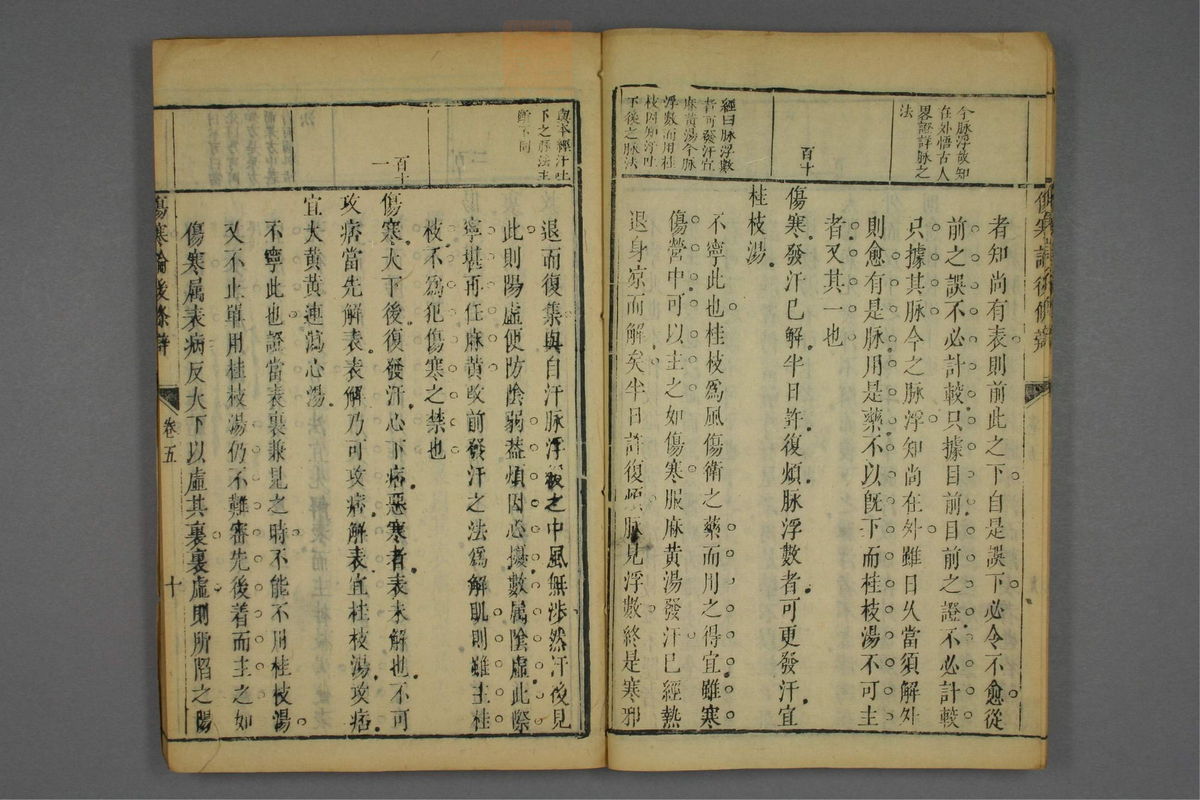 今脉浮故知
在外悟古人
畧證詳脉之
法
百十
經曰脉浮數
者可發汗宜
麻黄湯今脉
浮數而用桂
枝因知汗吐
下後之脉法
者知尚有表則前此之下自是誤下必令不愈從
前之誤不必計較只據目前目前之證不必計較
只據其脉今之脉浮知尚在外雖日久當須解外
則愈有是脉用是藥不以既下而桂枝湯不可主
者又其一也
傷寒發汗已解半日許復煩脉浮數者可更發汗宜
桂枝湯
不寧此也桂枝爲風傷衛之藥而用之得宜雖寒
傷營中可以主之如傷寒服麻黄湯發汗已經熱
退身凉而解矣半日許復煩脉見浮數終是寒邪
與本經汗吐
下之脉法主
斷不同
百十
一
退而復集與自汗脉浮緩之中風無涉然汗後見
此則陽虛便防陰弱葢煩因心擾數属陰虛此際
寧堪再任麻黄改前發汗之法爲解肌則雖主桂
枝不爲犯傷寒之禁也
傷寒大下後復發汗心下痞惡寒者表未解也不可
攻痞當先解表表解乃可攻痞解表宜桂枝湯攻痞
宜大黄黄連瀉心湯
不寧此也證當表裏兼見之時不能不用桂枝湯
又不止單用桂枝湯仍不難審先後着而主之如
傷寒属表病反大下以虛其裏裏虛則所陷之陽
傷寒論後條辨
卷五
十